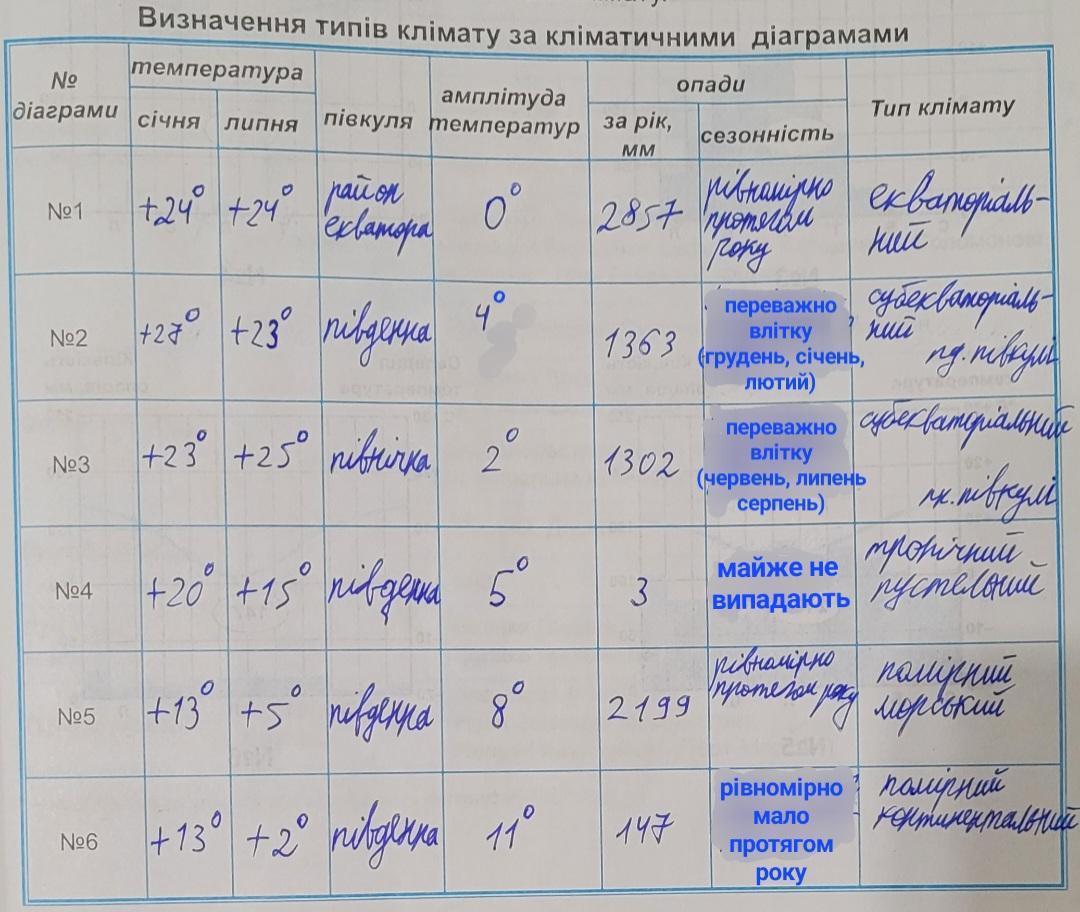 Визначення типів клімату за кліматичними діаграмами
№ діаграми
температура
січня
липня
півкуля
амплітуда температур
опади
за рік, мм
сезонність
Тип клімату
№1
+24°
+24°
район
екватора
0°
2857
рівномірно
протягом
року
екваторіаль-
ний
№2
+27°
+23°
південна
4°
1363
переважно
влітку
(грудень, січень,
лютий)
субекваторіаль-
ний
пд. півкулі
№3
+23°
+25°
північна
2°
1302
переважно
влітку
(червень, липень
серпень)
субекваторіальний
пн. півкулі
№4
+20°
+15°
південна
5°
3
майже не
випадають
тропічний
пустельний
№5
+13°
+5°
південна
8°
2199
рівномірно
протягом року
помірний
морський
№6
+13°
+2°
південна
11°
147
рівномірно
мало
протягом
року
помірний
континентальний